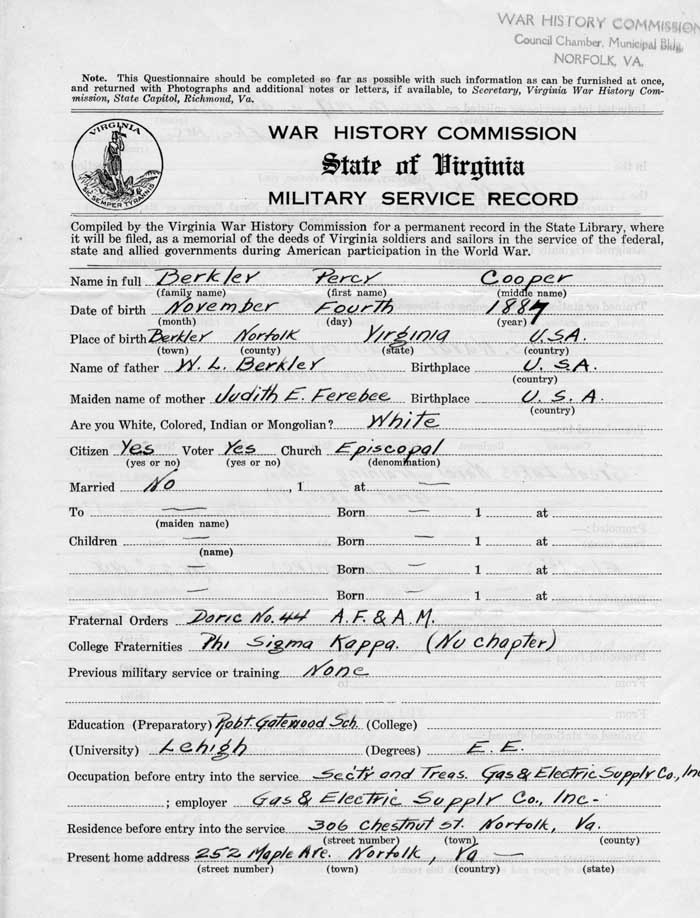 WAR HISTORY COMMISSION
Council Chamber, Municipal Bldg.
NORFOLK, VA.
Note. This Questionnaire should be completed so far as possible with such information as can be furnished at once,
and returned with Photographs and additional notes or letters, if available, to Secretary, Virginia War History Com-
mission, State Capitol, Richmond, Va.
VIRGINIA
SIC SEMPER TYRANNIS
WAR HISTORY COMMISSION
State of Virginia
MILITARY SERVICE RECORD
Compiled by the Virginia War History Commission for a permanent record in the State Library, where
it will be filed, as a memorial of the deeds of Virginia soldiers and sailors in the service of the federal,
state and allied governments during American participation in the World War.
Name in full Berkley Percy Cooper
(family name) (first name) (middle name)
Date of birth November Fourth 1887
(month) (day) (year)
Place of birth Berkley Norfolk Virginia U.S.A.
(town) (county) (state) (country)
Name of father W. L. Berkley Birthplace U. S. A.
(country)
Maiden name of mother Judith E. Ferebee Birthplace U. S. A.
(country)
Are you White, Colored, Indian or Mongolian? White
Citizen Yes Voter Yes Church Episcopal
(yes or no) (yes or no) (denomination)
Married No , 1 at —
To — Born — 1 at
(maiden name)
Children — Born — 1 at
(name)
— Born — 1 at
— Born — 1 at
Fraternal Orders Doric No. 44 A.F. & A.M.
College Fraternities Phi Sigma Kappa. (Nu chapter)
Previous military service or training None
Education (Preparatory) Robt. Gatewood Sch. (College)
(University) Lehigh (Degrees) E. E.
Occupation before entry into the service Sec't'y and Treas. Gas & Electric Supply Co., Inc
; employer Gas & Electric Supply Co., Inc-
Residence before entry into the service 306 Chestnut St. Norfolk, Va.
(street number) (town) (county)
Present home address 252 Maple Ave. Norfolk, Va —
(street number) (town) (country) (state)